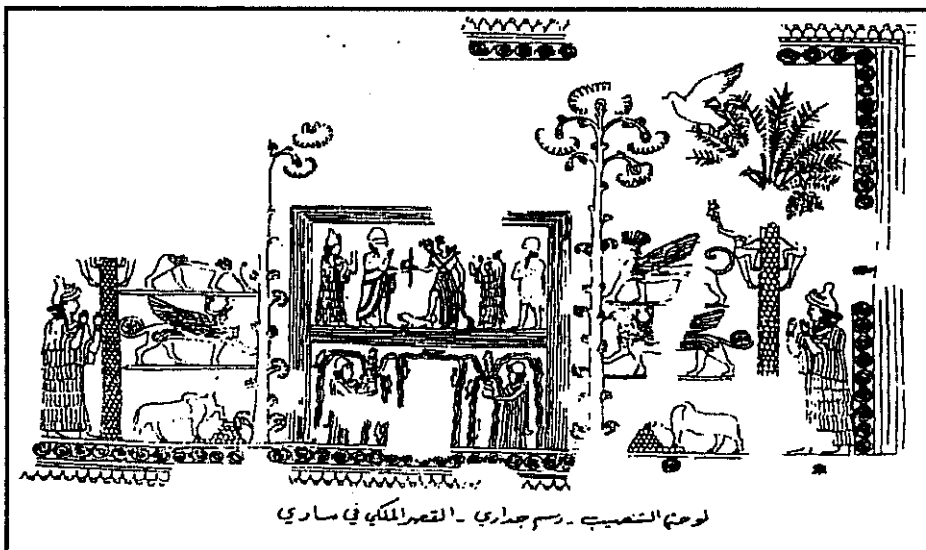 لوحة التنصيب - رسم جداري - القصر الملكي في ماري